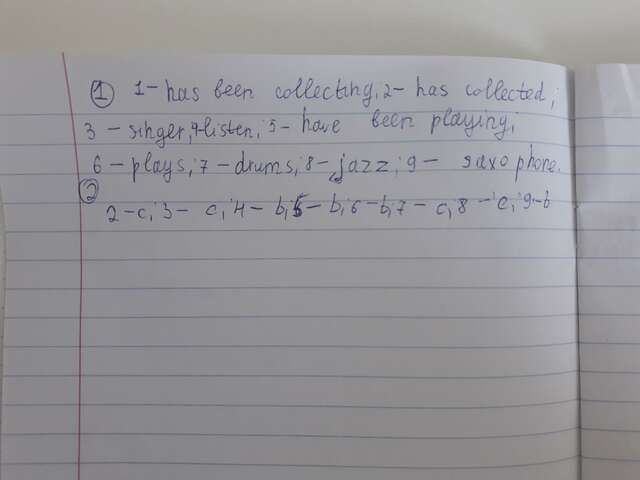 ① 1- has been collecting; 2- has collected;
3 - singer; 4-listen; 5- have been playing;
6 - plays; 7 - drums; 8 - jazz; 9 - saxophone.
②
2-c; 3- c; 4- b; 5- b; 6-b; 7- c; 8 - c; 9-b